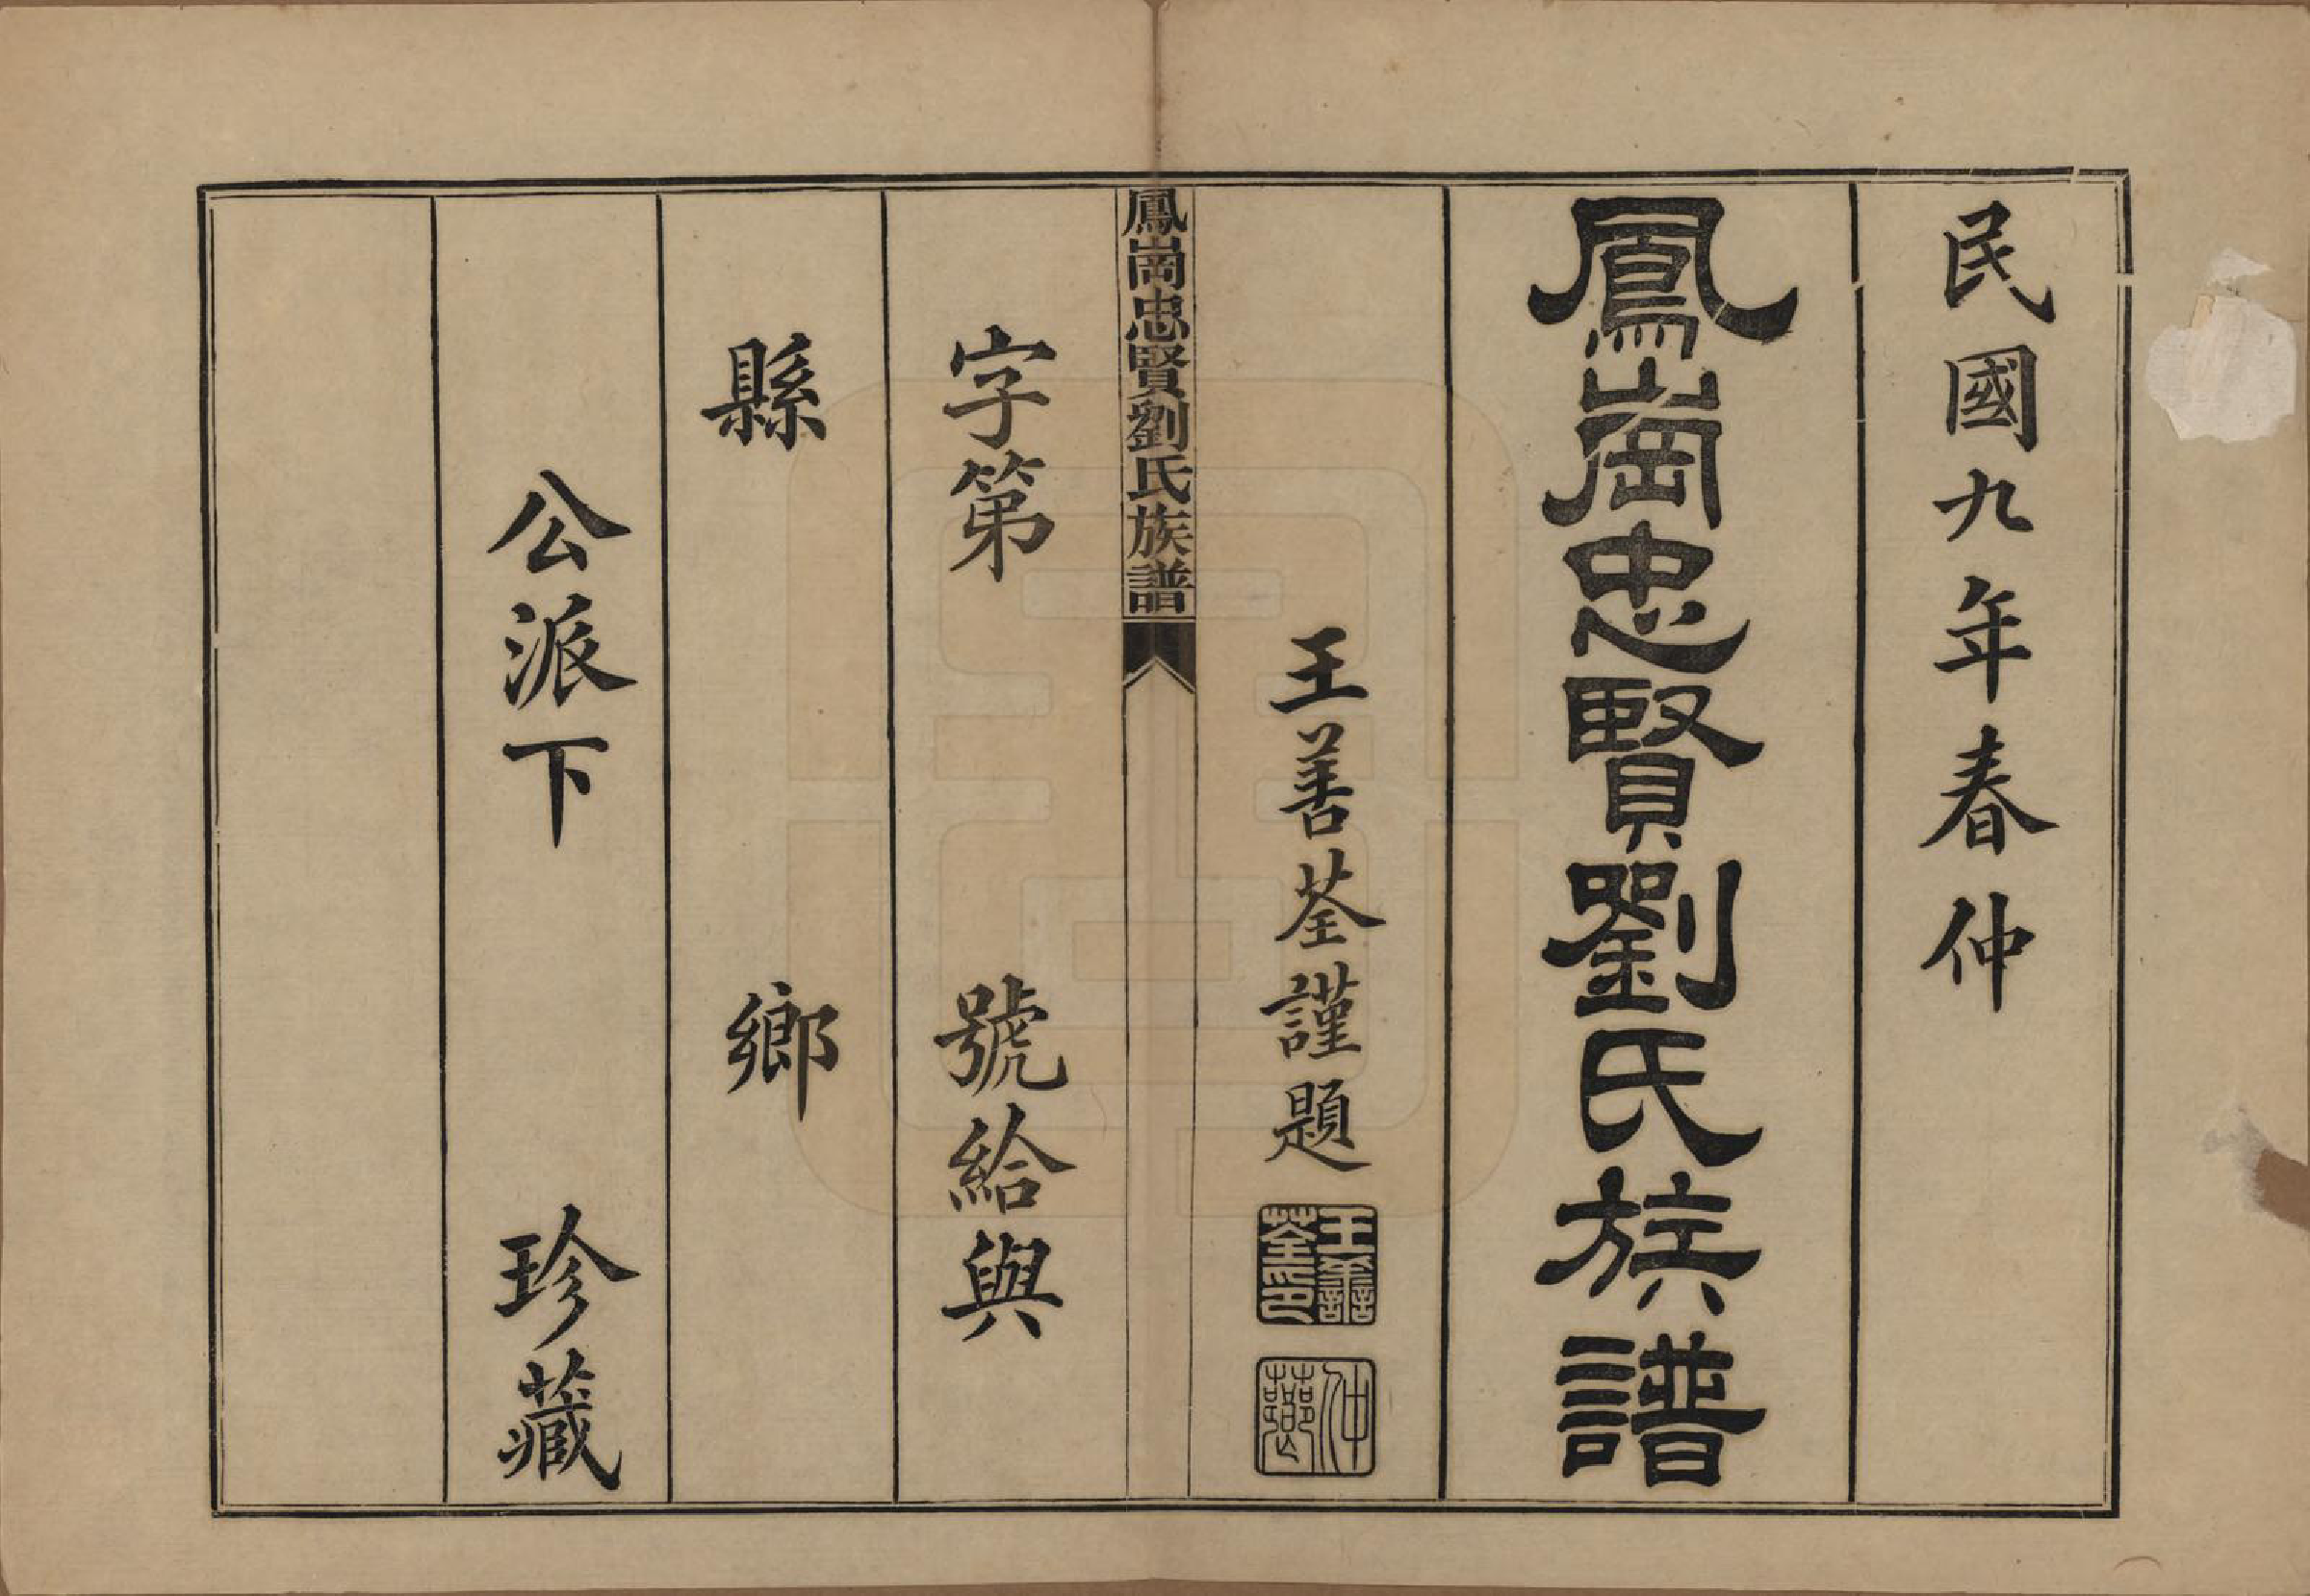 民國九年春仲
鳳崗忠賢劉氏族譜
王善荃謹題
王善
荃印
仲
鳳崗忠賢劉氏族譜
字第　號給與
縣　鄉
公派下　珍藏